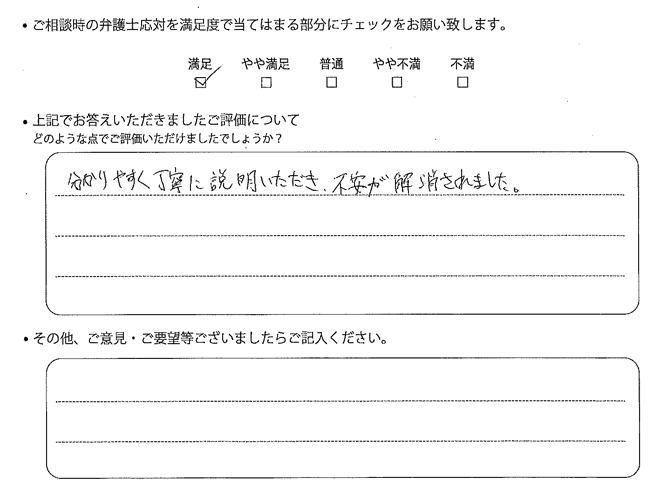 ・ご相談時の弁護士応対を満足度で当てはまる部分にチェックをお願い致します。
満足 やや満足 普通 やや不満 不満
・上記でお答えいただきましたご評価について
どのような点でご評価いただけましたでしょうか？
分かりやすく丁寧に説明いただき、不安が解消されました。
・その他、ご意見・ご要望等ございましたらご記入ください。